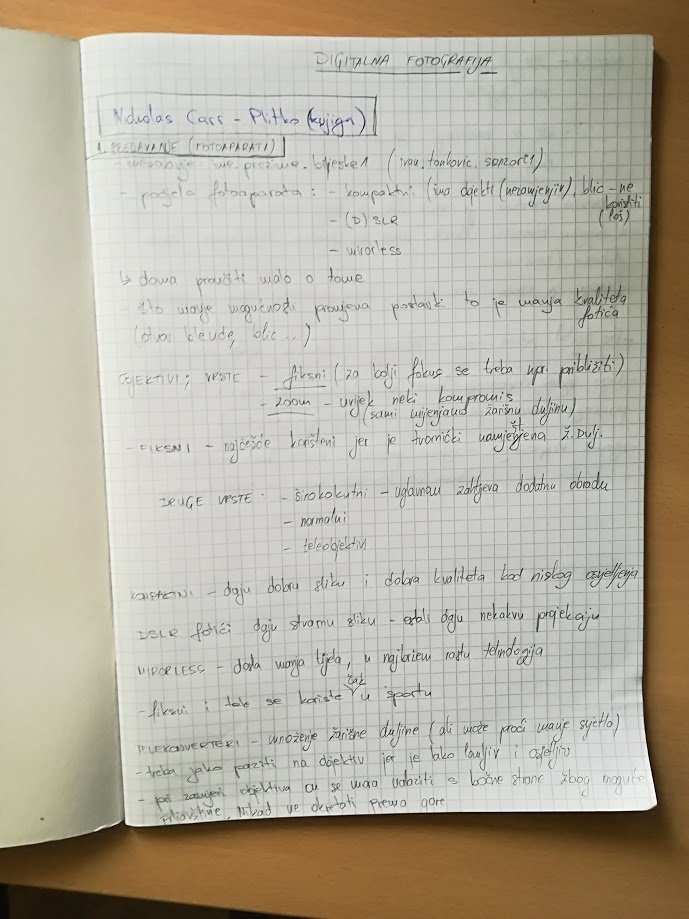 DIGITALNA FOTOGRAFIJA
Nicholas Carr - Plitko (knjiga)
1. PREDAVANJE (FOTOAPARATI)
- imenovanje: ime.prezime.bilješke1 (ivan.tonkovic.senzori1)
- podjela fotoaparata: - kompaktni (ima objektiv (nezamjenjiv), blic - ne
koristiti
(loš)
- (D) SLR
- mirorless
↳ doma proučiti malo o tome
- što manje mogućnosti promjena postavki to je manja kvaliteta
fotića
(otvor blende, blic...)
OBJEKTIVI; VRSTE - fiksni (za bolji fokus se treba npr. približiti)
- zoom - uvijek neki kompromis
(sami mijenjamo žarišnu duljinu)
- FIKSNI - najčešće korišteni jer je tvornički namještena ž. Dulj.
DRUGE VRSTE: - širokokutni - uglavnom zahtjeva dodatnu obradu
- normalni
- teleobjektivi
KOMPAKTNI - daju dobru sliku i dobra kvaliteta kod niskog osvjetljenja
DSLR fotići daju stvarnu sliku - ostali daju nekakvu projekciju
MIRORLESS - dosta manja tijela, u najbržem rastu tehnologija
- fiksni i tele se koriste čak u športu
TELEKONVERTERI - množenje žarišne duljine (ali može proći manje svjetla)
- treba jako paziti na objektiv jer je lako lomljiv i osjetljiv
- pri zamjeni objektiva on se mora nalaziti s bočne strane zbog moguće
prljavštine. Nikad ne okretati prema gore